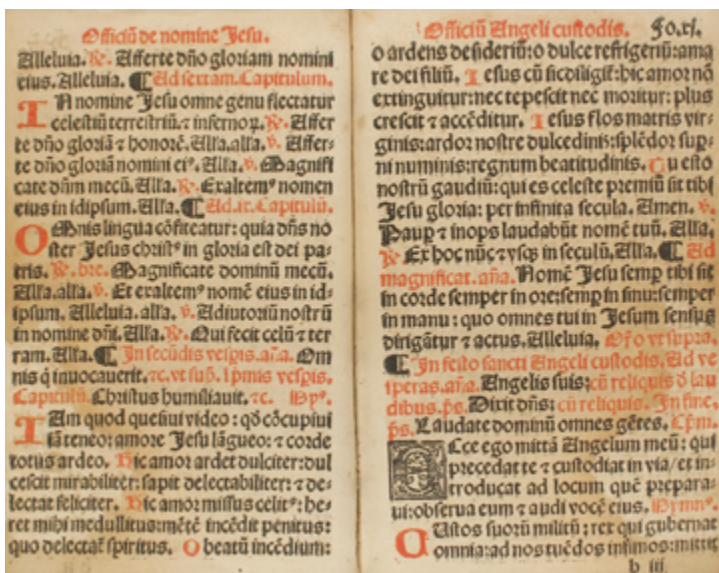 Officiū de nomine Jesu.
Alleluia. ℟. Afferte dño gloriam nomini
eius. Alleluia. ¶ Ad sextam. Capitulum.
IN nomine Jesu omne genu flectatur
celestiū terrestriū. ⁊ infernoꝝ. ℟. Affer
te dño gloriā ⁊ honorē. Alla. alla. ℣. Affer-
te dño gloriā nomini eiꝰ. Alla. ℣. Magnifi
cate dñm mecū. Alla. ℟. Exaltemꝰ nomen
eius in idipsum. Alla. ¶ Ad.ix. Capitulū.
OMnis lingua cōfiteatur: quia dñs no
ster Jesus christꝰ in gloria est dei pa-
tris. ℟. bre. Magnificate dominū mecū.
Alla. alla. ℣. Et exaltemꝰ nomē eius in id-
ipsum. Alleluia. alla. ℣. Adiutoriū nostrū
in nomine dñi. Alla. ℟. Qui fecit celū ⁊ ter
ram. Alla. ¶ In secūdis vesp̄is. aña. Om
nis q̄ inuocauerit. ⁊c. vt sup̄. Ip̄mis vesp̄is.
Capitulū. Christus humiliauit. ⁊c. Hyꝰ.
IAm quod quesiui video: qd̄ cōcupiui
iā teneo: amore Jesu lāgueo: ⁊ corde
totus ardeo. Hic amor ardet dulciter: dul
cescit mirabiliter: sapit delectabiliter: ⁊ de-
lectat feliciter. Hic amor missus celitꝰ: he-
ret mihi medullitus: mētē incēdit penitus:
quo delectat̄ spiritus. O beatū incēdium:
Officiū Angeli custodis. Fo.xi.
o ardens desideriū: o dulce refrigeriū: ama
re dei filiū. Iesus cū sic diligit̄: hic amor nō
extinguitur: nec tepescit nec moritur: plus
crescit ⁊ accēditur. Iesus flos matris vir-
ginis: ardor nostre dulcedinis: splēdor sup̄-
ni numinis: regnum beatitudinis. Tu esto
nostrū gaudiū: qui es celeste premiū sit tibi
Jesu gloria: per infinita secula. Amen. ℣.
Paup̄ ⁊ inops laudabūt nomē tuū. Alla.
℟. Ex hoc nūc ⁊ vsq̄ in seculū. Alla. ¶ Ad
magnificat. aña. Nomē Jesu semp̄ tibi sit
in corde semper in ore: semp̄ in sinu: semper
in manu: quo omnes tui in Jesum sensus
dirigātur ⁊ actus. Alleluia. Oro vt supra.
¶ In festo sancti Angeli custodis. Ad ve
speras. aña. Angelis suis: cū reliquis d̄ lau
dibus. p̄s. Dixit dñs: cū reliquis. In fine.
p̄s. Laudate dominū omnes gētes. Cp̄m.
ECce ego mittā Angelum meū: qui
precedat te ⁊ custodiat in via / et in-
troducat ad locum quē prepara-
ui: obserua eum ⁊ audi vocē eius. Hymnꝰ.
CUstos suorū militū: rex qui gubernat
omnia: ad nos tuēdos infimos: mittit
b iii